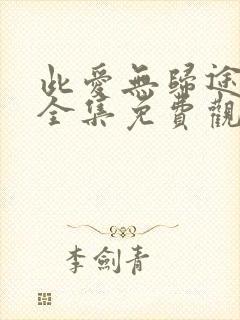 此愛無歸途
全集免費觀
李劍青